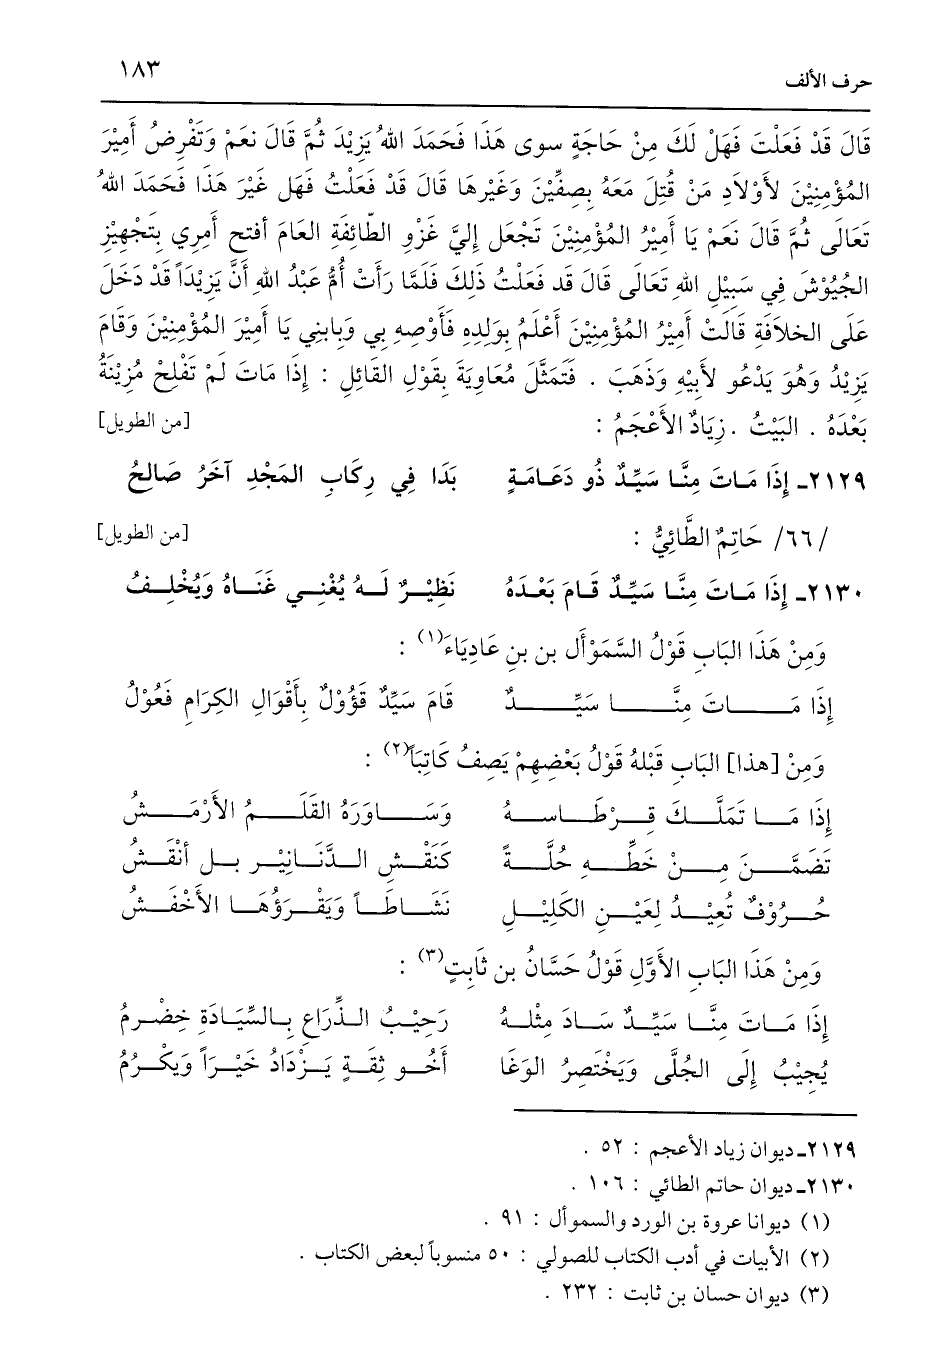 حرف الألف ١٨٣
قَالَ قَدْ فَعَلْتَ فَهَلْ لَكَ مِنْ حَاجَةٍ سوى هَذَا فَحَمَدَ اللهُ يَزِيْدَ ثُمَّ قَالَ نعَمْ وَتَفْرِضُ أَمِيْرَ
المُؤْمِنِيْنَ لأَوْلَادِ مَنْ قُتِلَ مَعَهُ بِصِفِّيْنَ وَغَيْرِهَا قَالَ قَدْ فَعَلْتُ فَهَل غَيْرَ هَذَا فَحَمَدَ اللهُ
تَعَالَى ثُمَّ قَالَ نَعَمْ يَا أَمِيْرُ المُؤْمِنِيْنَ تَجْعَل إِلَيَّ غَزْوِ الطَّائِفَةِ العَامَ أفتح أمرِي بِتَجْهِيْزِ
الجُيُوْشَ فِي سَبِيْلِ اللهِ تَعَالَى قَالَ قَد فَعَلْتُ ذَلِكَ فَلَمَّا رَأَتْ أُمُّ عَبْدُ اللهِ أَنَّ يَزِيْدَاً قَدْ دَخَلَ
عَلَى الخلَافَةِ قَالَتْ أَمِيْرُ المُؤْمِنِيْنَ أَعْلَمُ بِوَلدِهِ فَأَوْصِهِ بِي وَبِابنِي يَا أَمِيْرَ المُؤْمِنِيْنَ وَقَامَ
يَزِيْدُ وَهُوَ يَدْعُو لأَبِيْهِ وَذَهَبَ . فَتَمَثَّلَ مُعَاوِيَةَ بِقَوْلِ القَائِلِ : إِذَا مَاتَ لَمْ تَفْلِحْ مُزَيْنَةُ
بَعْدَهُ . البَيْتُ . زِيَادُ الأَعْجَمُ : [من الطويل]
٢١٢٩ـ إِذَا مَـاتَ مِنَّـا سَيِّـدٌ ذُو دَعَـامَـةٍ بَدَا فِي رِكَابِ المَجْدِ آخَرُ صَالِحُ
/٦٦/ حَاتِمُ الطَّائِيُّ : [من الطويل]
٢١٣٠ـ إِذَا مَـاتَ مِنَّـا سَيِّـدٌ قَـامَ بَعْـدَهُ نَظِيْـرٌ لَـهُ يُغْنِـي غَنَـاهُ وَيُخْلِـفُ
وَمِنْ هَذَا البَابِ قَوْلُ السَّمَوْأَل بن بنِ عَادِيَاءَ(١) :
إِذَا مَـــاتَ مِنَّـــا سَيِّـــدٌ قَامَ سَيِّدٌ قَؤُوْلٌ بِأَقْوَالِ الكِرَامِ فَعُوْلُ
وَمِنْ [هذا] البَابِ قَبْلهُ قَوْلُ بَعْضِهِمْ يَصِفُ كَاتِبَاً(٢) :
إِذَا مَـــا تَمَلَّـــكَ قِـــرْطَـاســـهُ وَسَـــاوَرَهُ القَلَـــمُ الأَرْمَـــشُ
تَضَمَّـــنَ مِـــنْ خَطِّـــهِ حُلَّـــةً كَنَقْـــشِ الـــدَّنَـانِيْـــرِ بـــل أَنْقَـــشُ
حُـــرُوْفٌ تُعِيْـــدُ لِعَيْـــنِ الكَلِيْـــلِ نَشَـــاطَـــاً وَيَقْـــرَؤُهَـــا الأَخْفَـــشُ
وَمِنْ هَذَا البَابِ الأَوَّلِ قَوْلُ حَسَّانُ بن ثَابِتٍ(٣) :
إِذَا مَـاتَ مِنَّـا سَيِّـدٌ سَـادَ مِثْلـهُ رَحِيْـبُ الـذِّرَاعِ بِـالسِّيَـادَةِ خِضْـرِمُ
يُجِيْبُ إِلَى الجُلَّى وَيَخْتَصِرُ الوَغَا أَخُـو ثِقَـةٍ يَـزْدَادُ خَيْـرَاً وَيَكْـرُمُ
٢١٢٩ـ ديوان زياد الأعجم : ٥٢ .
٢١٣٠ـ ديوان حاتم الطائي : ١٠٦ .
(١) ديوانا عروة بن الورد والسموأل : ٩١ .
(٢) الأبيات في أدب الكتاب للصولي : ٥٠ منسوباً لبعض الكتاب .
(٣) ديوان حسان بن ثابت : ٢٣٢ .